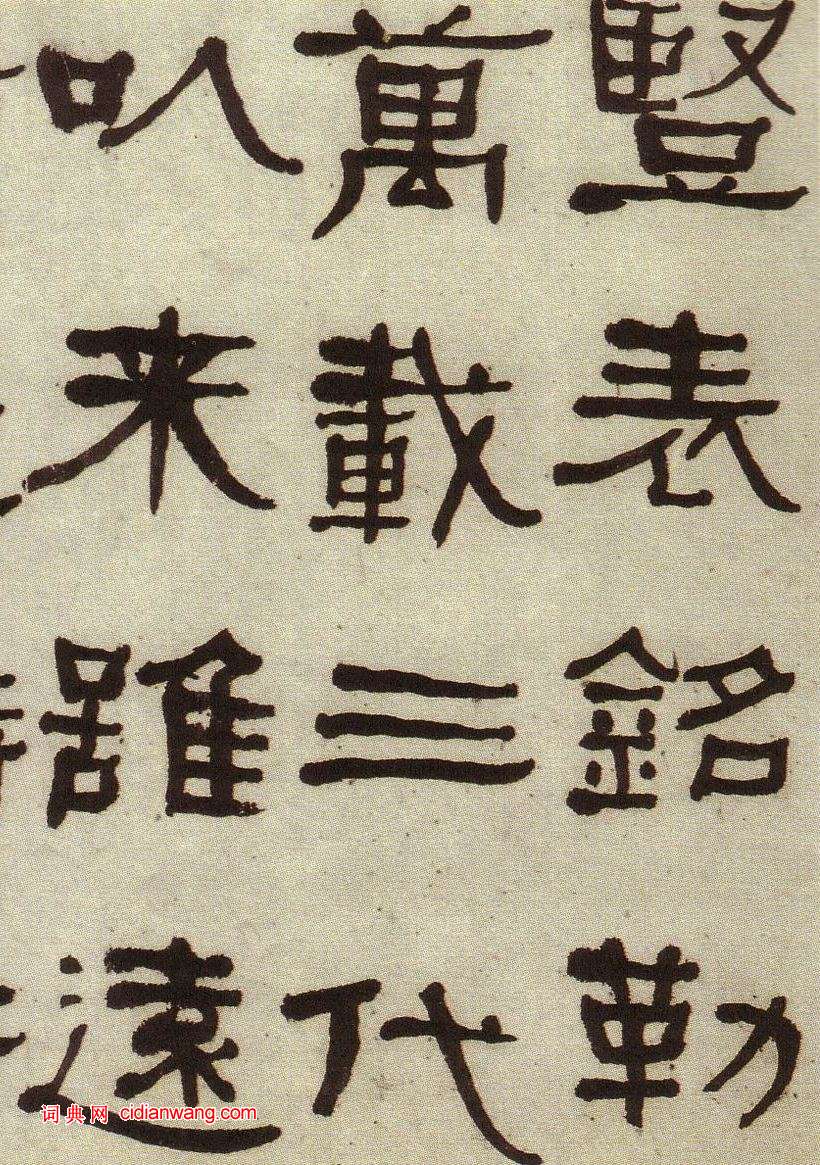 豎表銘勒
萬載三代
以来雖遠
词典网 cidianwang.com